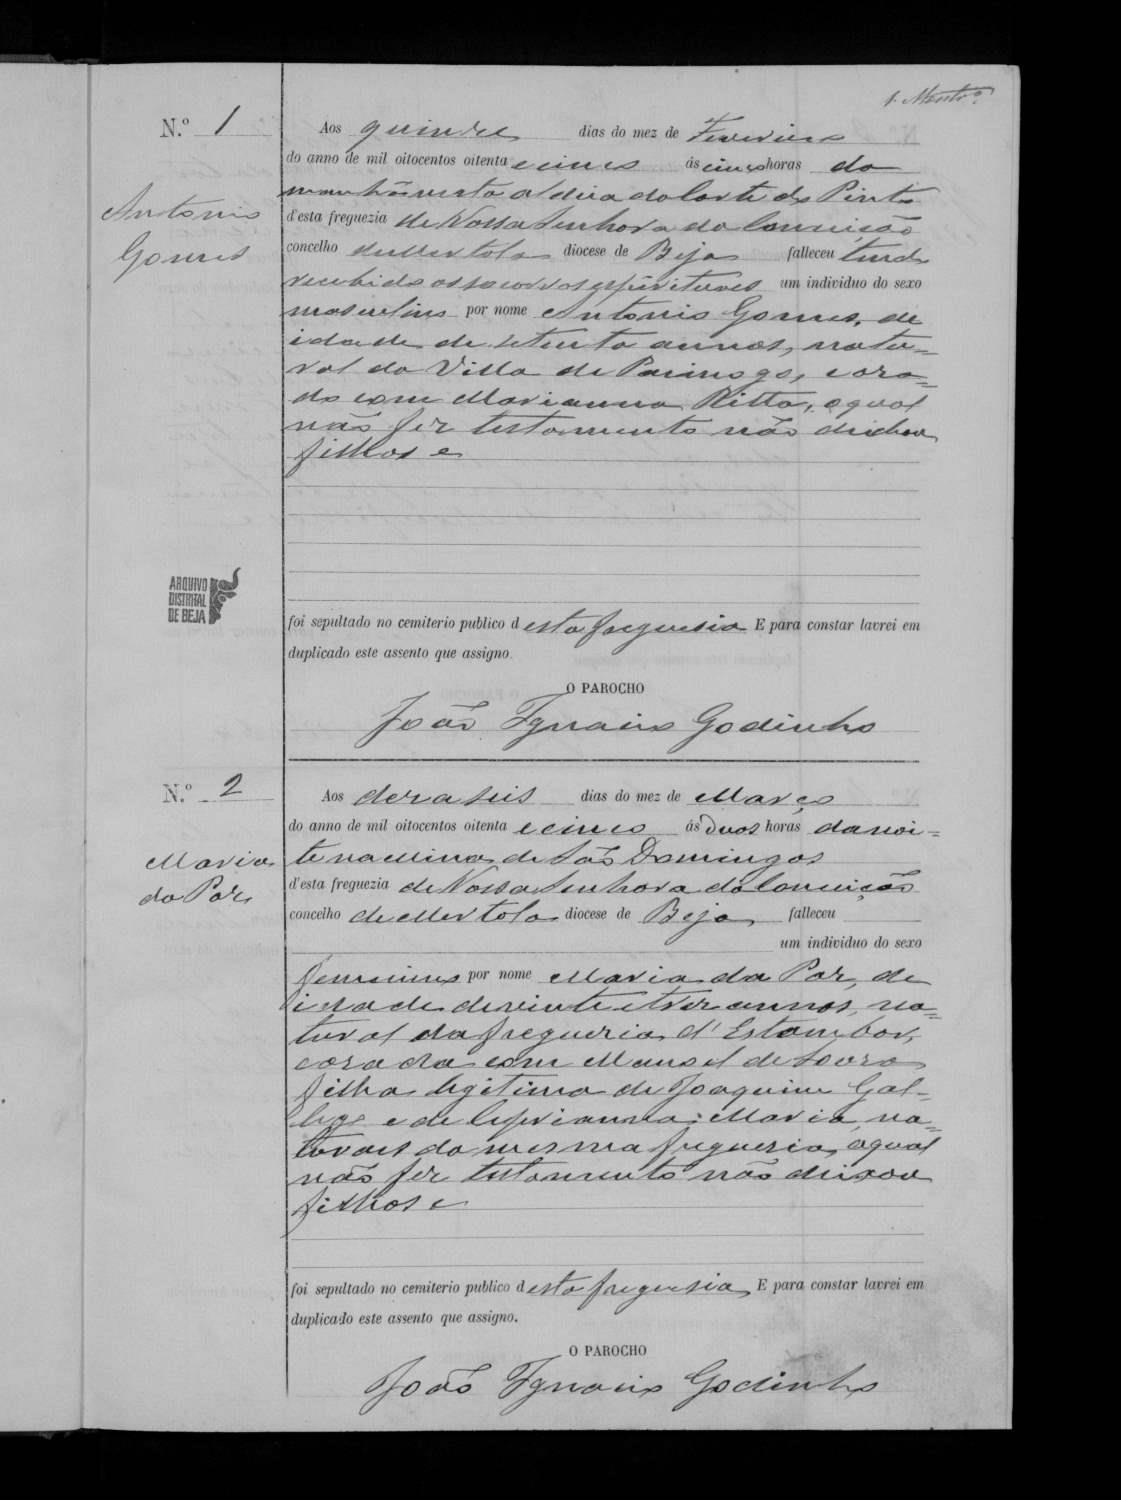 N.º 1
Antonio
Gomes
Aos quinze dias do mez de Fevereiro
do anno de mil oitocentos oitenta e cinco ás cinco horas da
manhã nesta aldeia da Corte do Pinto
d'esta freguezia de Nossa Senhora da Conceição
concelho de Mertola diocese de Beja falleceu tendo
recebido os socorros espirituaes um individuo do sexo
masculino por nome Antonio Gomes, de
idade de setenta annos, natu=
ral da Villa de , casa=
do com Marianna Ritta, o qual
não fez testamento não deichou
filhos e
ARQUIVO
DISTRITAL
DE BEJA
foi sepultado no cemiterio publico d esta freguesia E para constar lavrei em
duplicado este assento que assigno.
O PAROCHO
João Ignacio Godinho
N.º 2
Maria
da Paz
Aos dezaseis dias do mez de Março
do anno de mil oitocentos oitenta e cinco ás duas horas da noi=
te na Mina de São Domingos
d'esta freguezia de Nossa Senhora da Conceição
concelho de Mertola diocese de Beja falleceu
um individuo do sexo
femenino por nome Maria da Paz, de
idade de vinte e trez annos, na=
tural da freguezia d'Estombar,
casada com Manoel de Souza
filha legitima de Joaquim Gal=
lego e de Cyprianna Maria, na=
turaes da mesma freguezia, a qual
não fez testamento não deixou
filhos e
foi sepultado no cemiterio publico d esta freguesia E para constar lavrei em
duplicado este assento que assigno.
O PAROCHO
João Ignacio Godinho